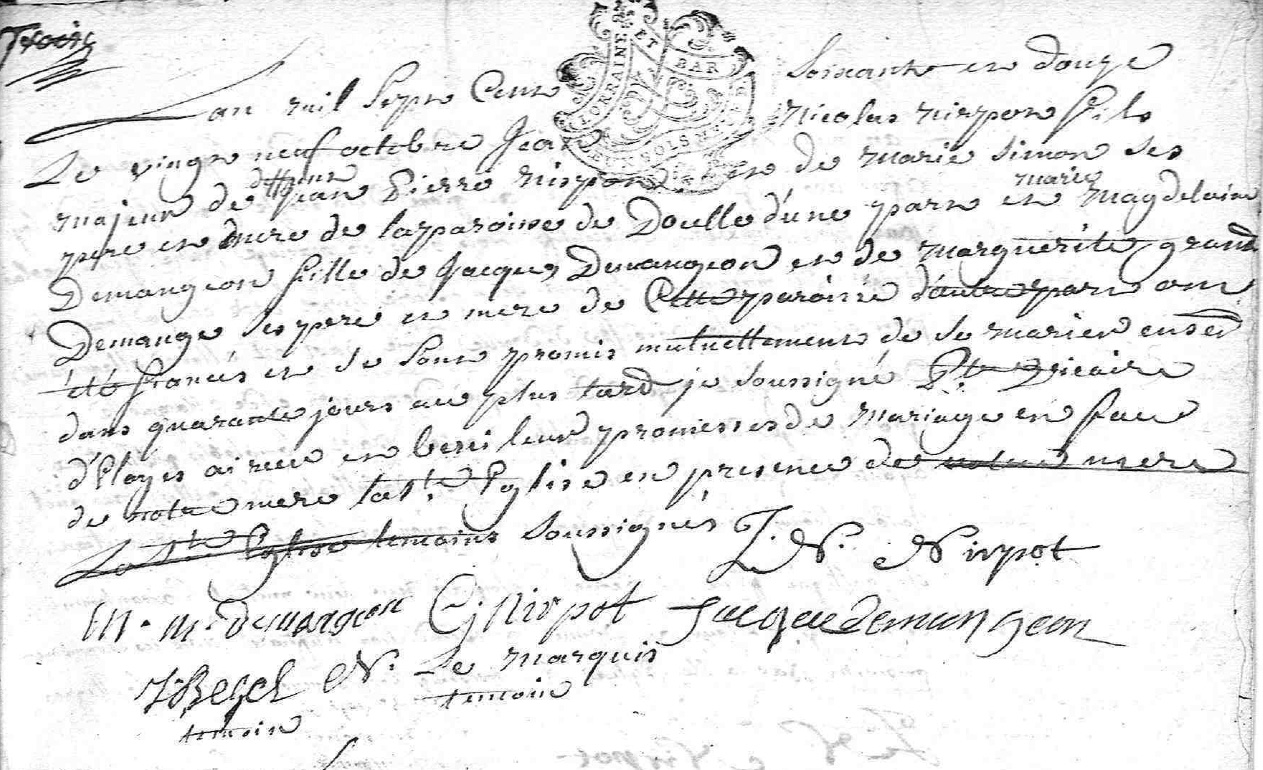 Lan mil Sept Cent Soixante et douze
Le vingt neuf octobre Jean Nicolas nirpon fils
deffunt
majeur de Jean Pierre nirpon et de marie Simon ses
marie
pere et mere de la paroisse de Docelle d'une part et Magdelaine
Demangeon fille de Jacques Demangeon et de marguerite grand
Demange ses pere et mere de Cette paroisse d'autre part ont
été fiancés et se sont promis mutuellement de se marier
dans quarante jours au plus tard je soussigné Vicaire
d'Eloyes ai reçu et beni leur promesses de Mariage en face
de notre mere la Ste Eglise en presence de notre mere
La Ste Eglise temoins Soussignés J. N. Nirpot
m. m. demangeon Nirpot Jacque demangeon
N. Le Marquis
temoin
temoin
LORRAINE ET BAR